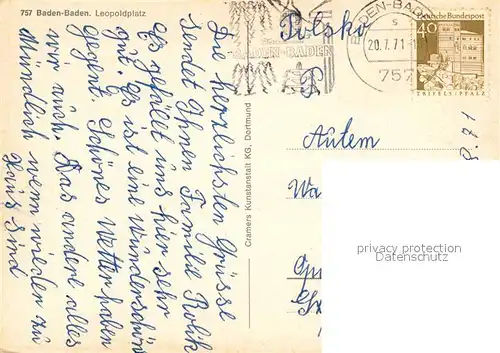 757 Baden-Baden. Leopoldplatz
Die herzlichsten Grüsse
sendet Ihnen Familie Rolik
es gefällt uns hier sehr
gut. Es ist eine wunderschöne
Gegent. Schönes Wetter haben
wir auch. Das andere alles
Mündlich wenn wieder zu
Haus sind
Cramers Kunstanstalt KG, Dortmund
BADEN-BADEN
BADEN-BAD
s
20.7.71
757
Deutsche Bundespost
40
TRIFELS/PFALZ
Polska
P
Autem
Wa
privacy protection
Datenschutz